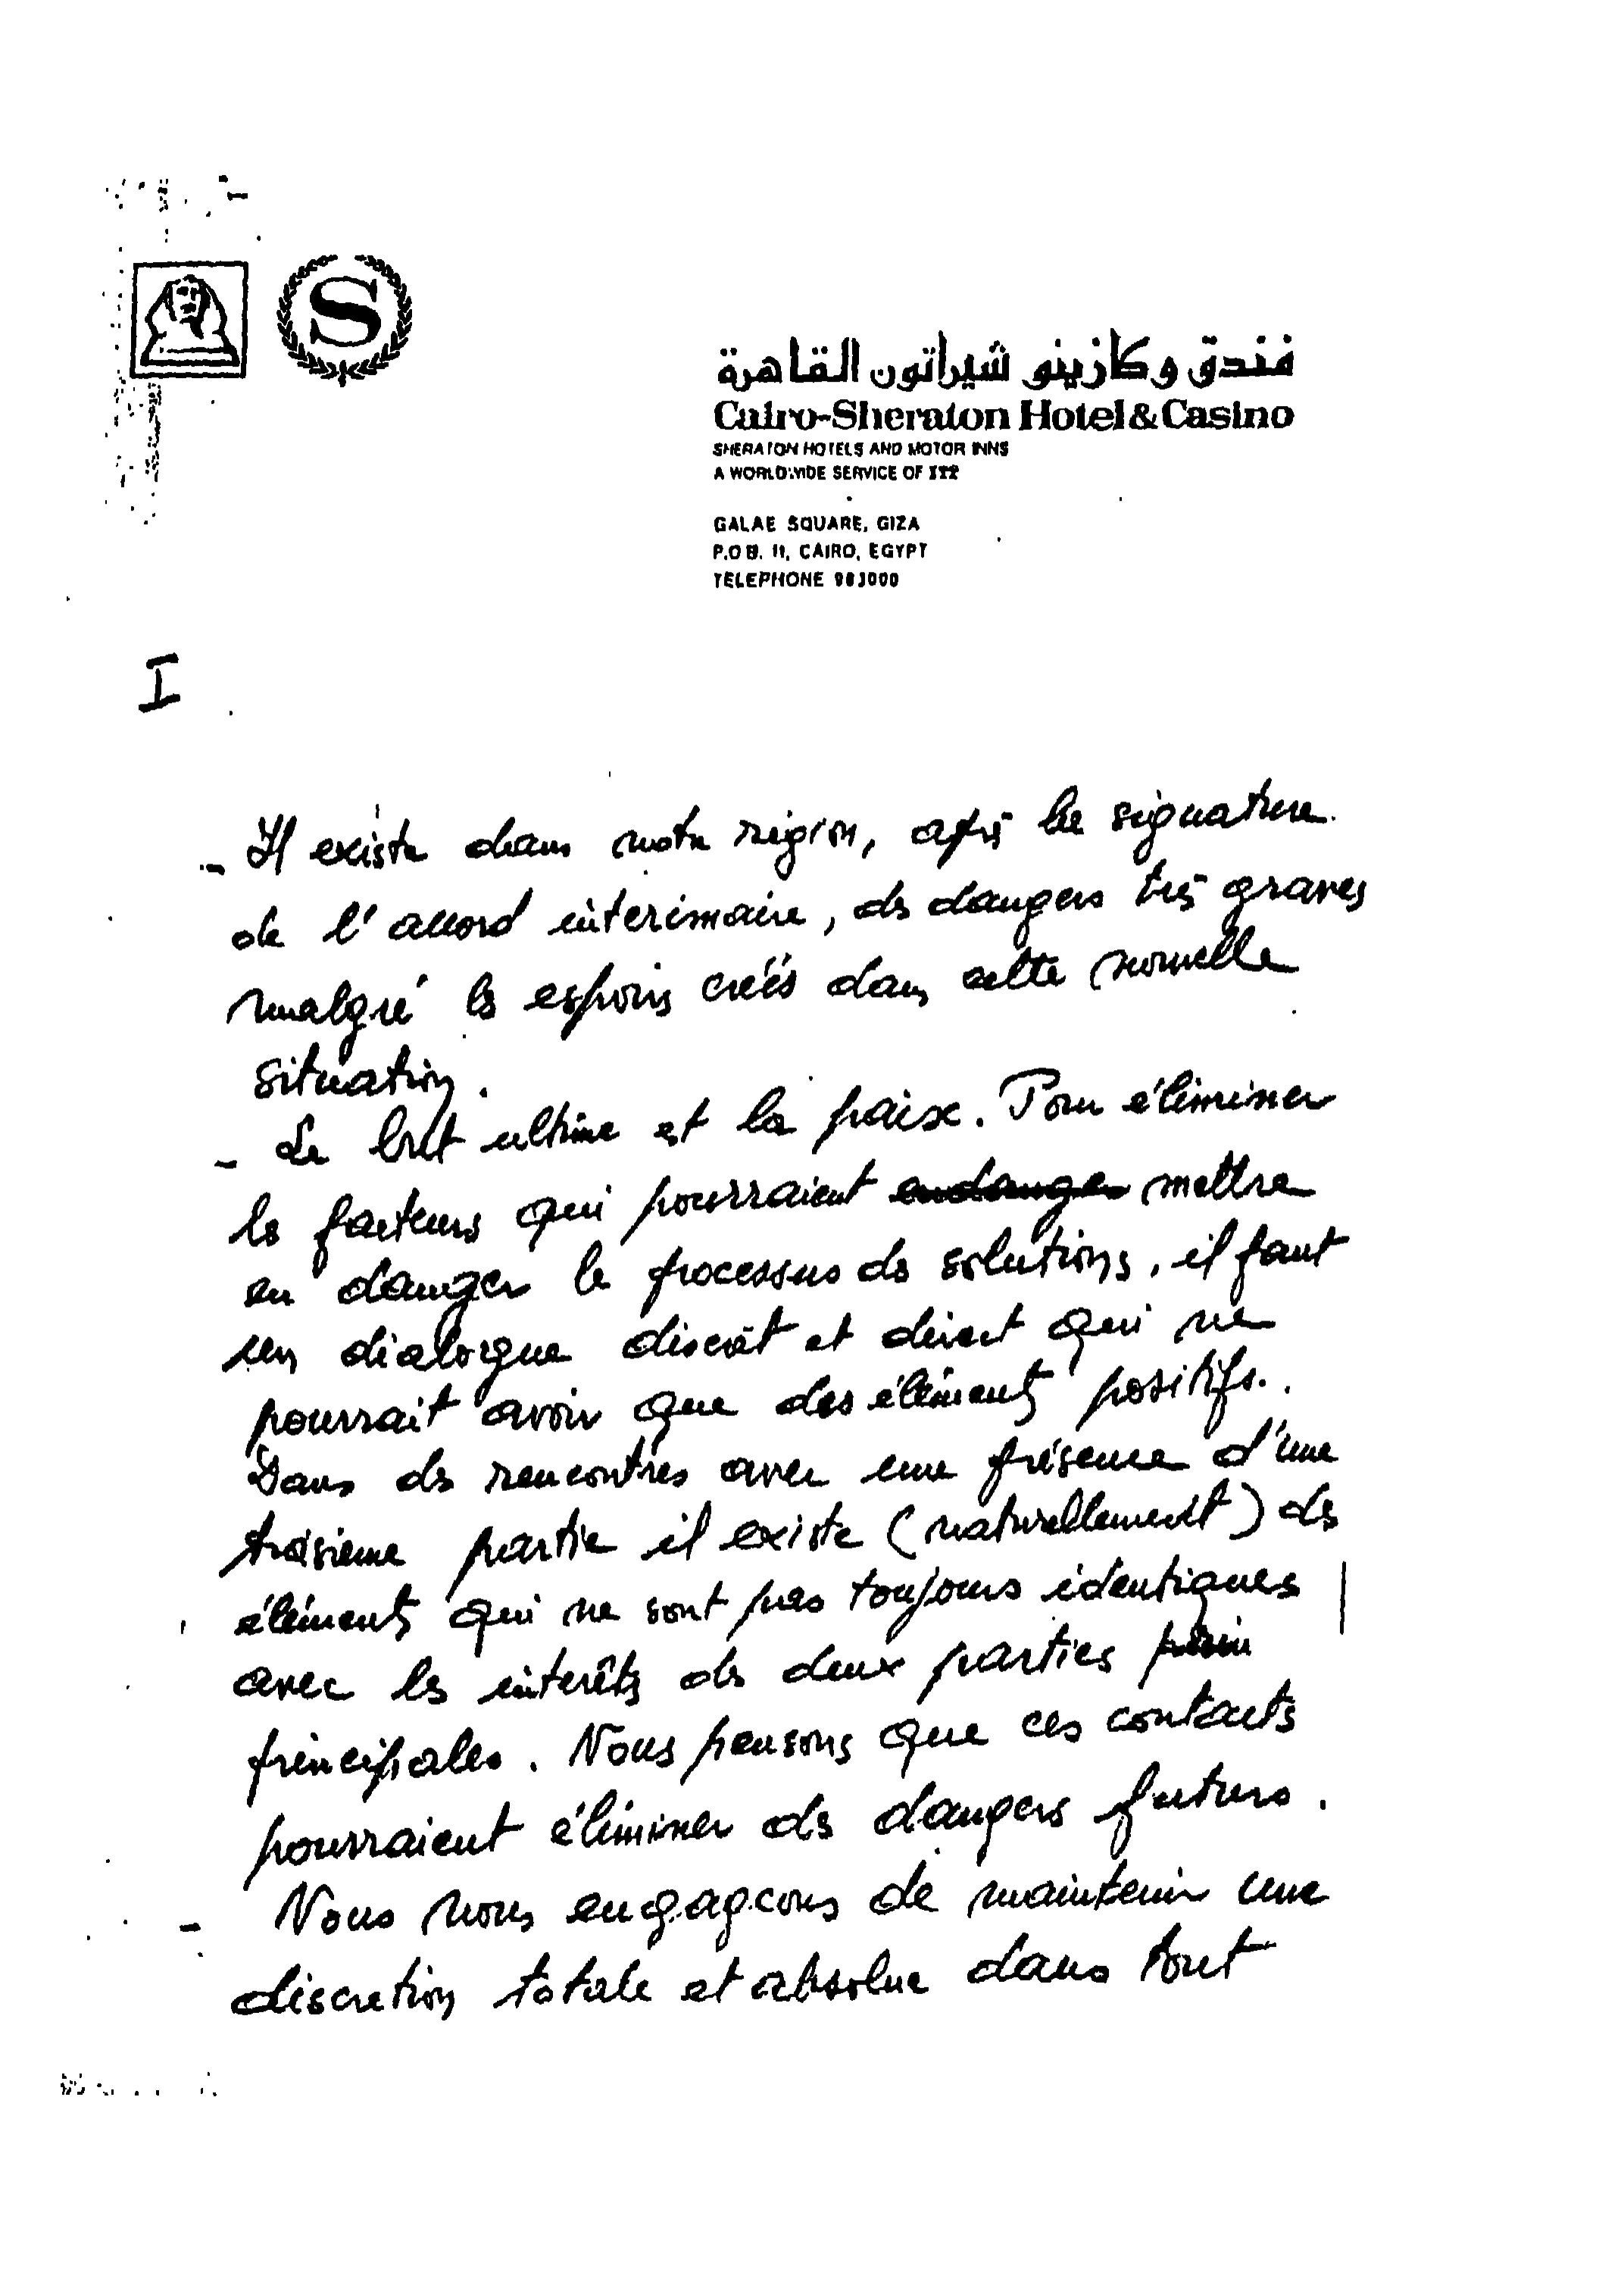 S
فندق وكازينو شيراتون القاهرة
Cairo-Sheraton Hotel & Casino
SHERATON HOTELS AND MOTOR INNS
A WORLDWIDE SERVICE OF ITT
GALAE SQUARE, GIZA
P.O.B. 11, CAIRO, EGYPT
TELEPHONE 983000
I
- Il existe dans notre région, après la signature
de l'accord intérimaire, des dangers très graves
malgré les espoirs créés dans cette nouvelle
situation.
- Le but ultime est la paix. Pour éliminer
les facteurs qui pourraient endanger mettre
en danger le processus des solutions, il faut
un dialogue discrèt et direct qui ne
pourrait avoir que des éléments positifs.
Dans des rencontres avec une présence d'une
troisieme partie il existe (naturellement) des
éléments qui ne sont pas toujours identiques
avec les interêts des deux parties prin
principales. Nous pensons que ces contacts
pourraient éliminer des dangers futurs.
- Nous nous engageons de maintenir une
discretion totale et absolue dans tout